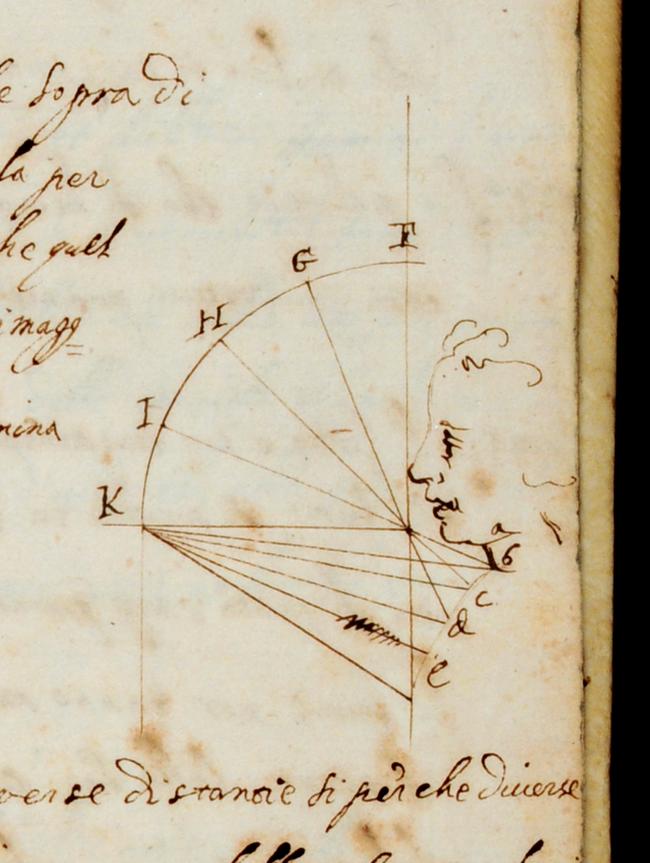 e sopra di
la per
he quel
F
G
imagg
H
I
mina
K
a
b
c
d
e
verse distantie si perche diverse